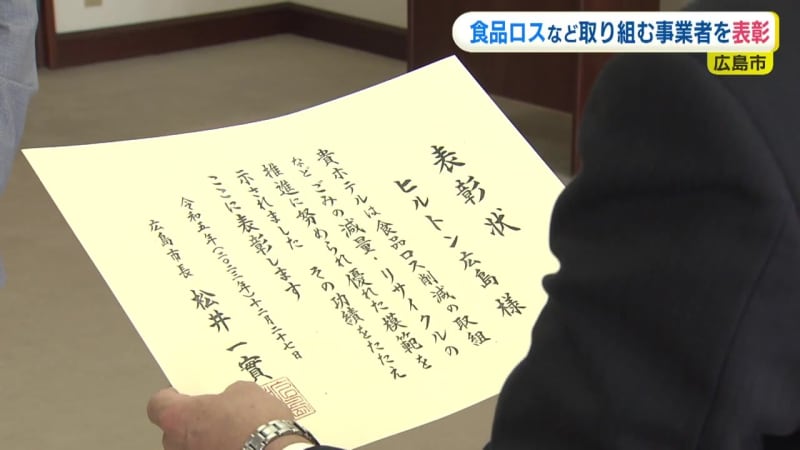 食品ロスなど取り組む事業者を表彰
広島市
表彰状
ヒルトン広島 様
貴ホテルは食品ロス削減の取組
などごみの減量、リサイクルの
推進に努められ優れた模範を
示されました その功績をたたえ
ここに表彰します
令和五年(二〇二三年)十二月二十七日
広島市長 松井一實